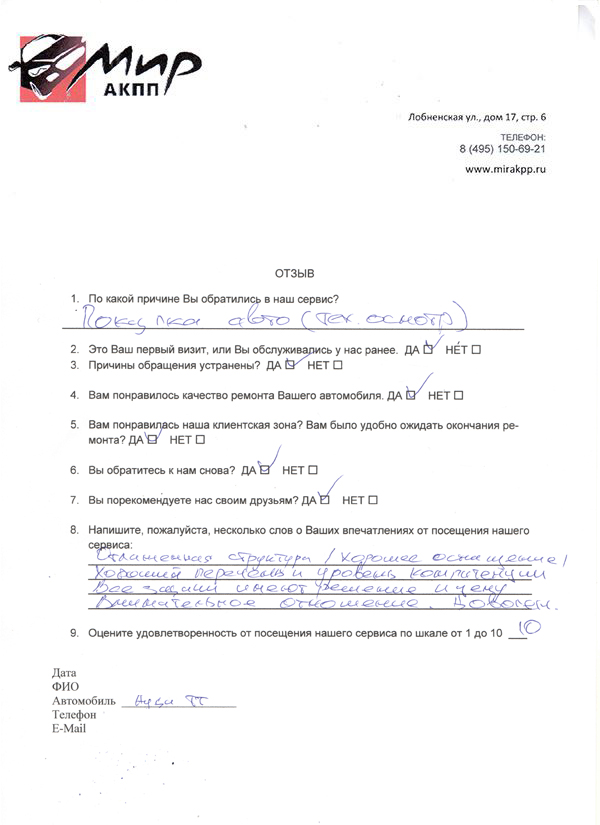 Мир
АКПП
Лобненская ул., дом 17, стр. 6
ТЕЛЕФОН:
8 (495) 150-69-21
www.mirakpp.ru
ОТЗЫВ
1. По какой причине Вы обратились в наш сервис?
Покупка авто (тех. осмотр)
2. Это Ваш первый визит, или Вы обслуживались у нас ранее. ДА ☑ НЕТ ☐
3. Причины обращения устранены? ДА ☑ НЕТ ☐
4. Вам понравилось качество ремонта Вашего автомобиля. ДА ☑ НЕТ ☐
5. Вам понравилась наша клиентская зона? Вам было удобно ожидать окончания ре-
монта? ДА ☑ НЕТ ☐
6. Вы обратитесь к нам снова? ДА ☑ НЕТ ☐
7. Вы порекомендуете нас своим друзьям? ДА ☑ НЕТ ☐
8. Напишите, пожалуйста, несколько слов о Ваших впечатлениях от посещения нашего
сервиса:
Отлаженная структура / хорошее оснащение /
Хороший перечень и уровень компетенции
Все задачи имеют решение и цену
Внимательное отношение. Доволен.
9. Оцените удовлетворенность от посещения нашего сервиса по шкале от 1 до 10 10
Дата
ФИО
Автомобиль Ауди ТТ
Телефон
E-Mail